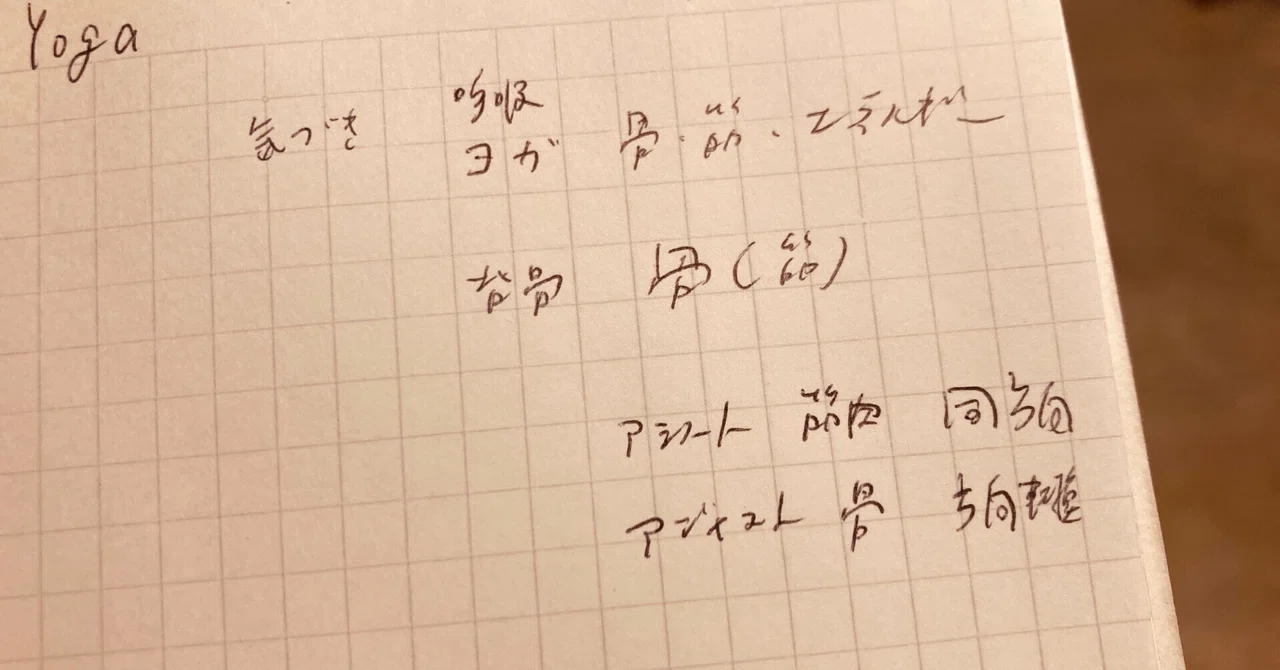 Yoga
呼吸
気づき ヨガ 骨・筋・エネルギー
背骨 骨(筋)
アシート 筋肉 同方向
アジャスト 骨 方向